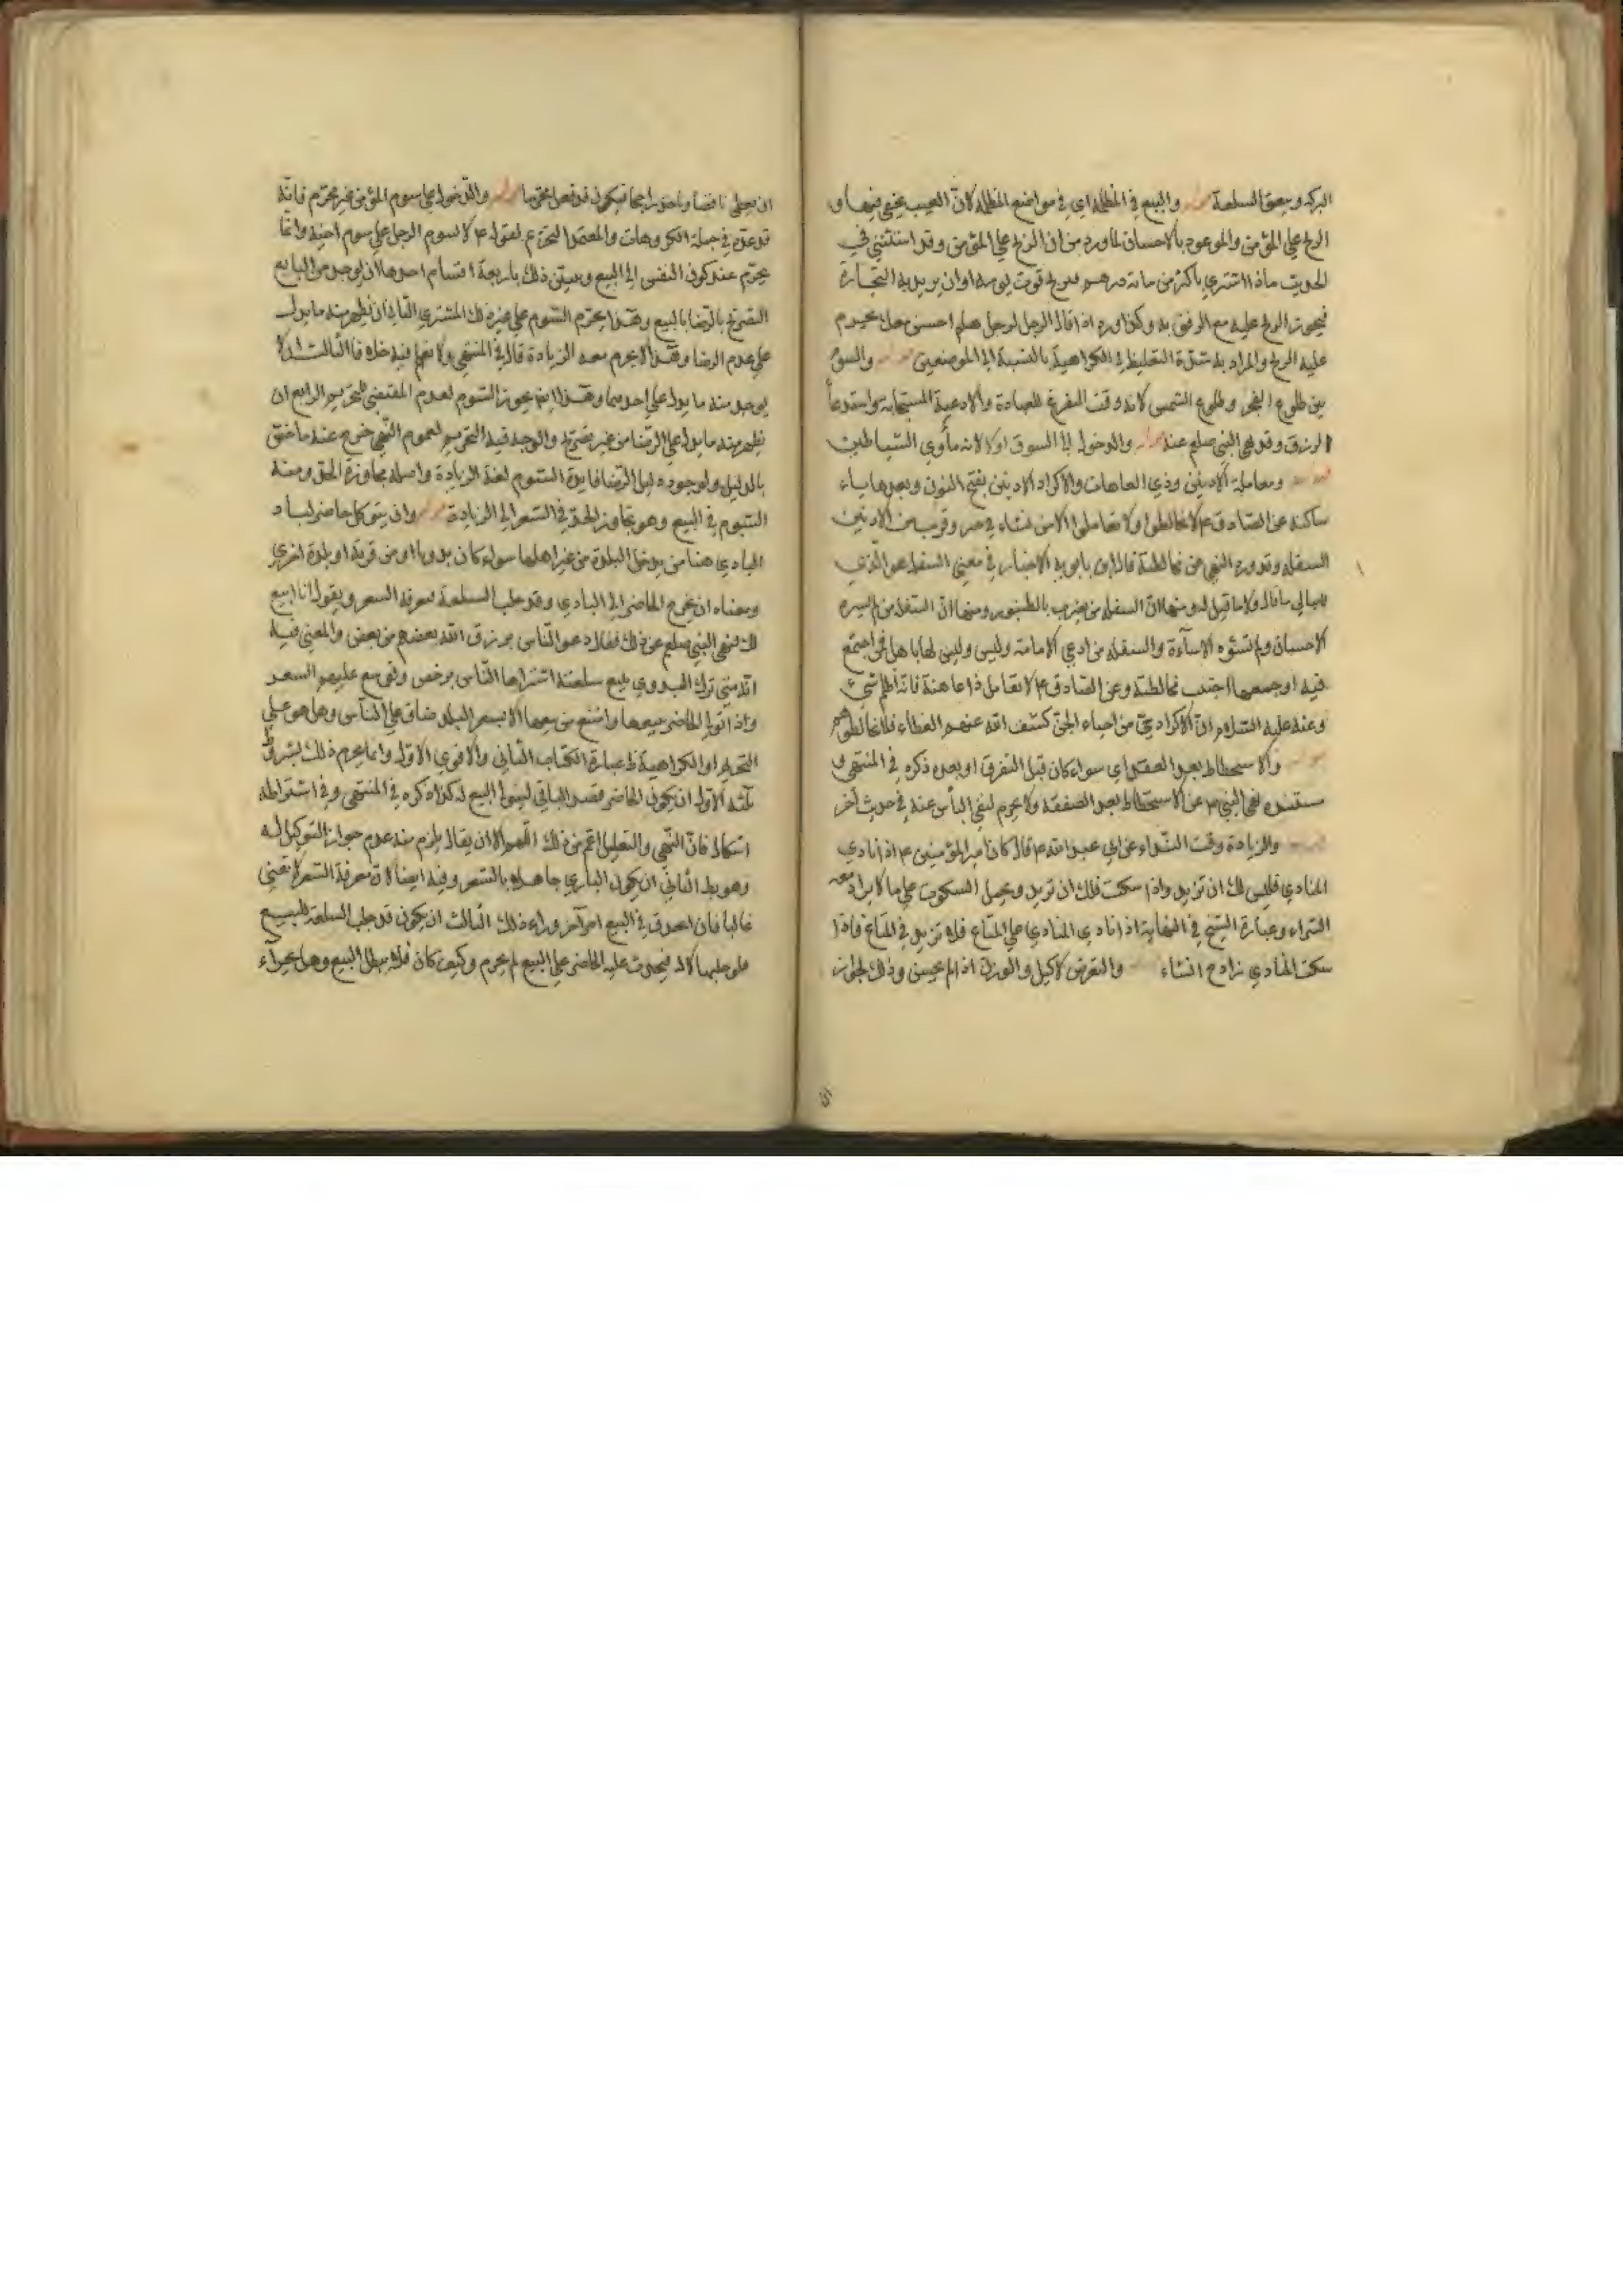 البركة وينفق السلعة والبيع في المظلمة اي في مواضع المظلمة لان العيب يخفي فيها و
الربح علي المؤمن والموعود بالاحسان لما ورد من ان الربح علي المؤمن وقد استثني في
الحديث ما اذا اشتري باكثر من مائة درهم فيربح قوت يومه او ان يريد به التجارة
فيجوز الربح عليه مع الرفق به وكذا ورد اذا قال الرجل لرجل هلم احسن بيعك يحرم
عليه الربح والمراد به شدة التغليظ في الكراهية بالنسبة الي الموضعين والسوم
بين طلوع الفجر وطلوع الشمس لانه وقت التفرغ للعبادة والادعية المستجابة واستدعاء
الرزق وقد نهي النبي صلعم عنه والدخول الي السوق اولا لانه مأوي الشياطين
ومعاملة الادنين وذي العاهات والاكراد الادنين بفتح النون وبعدها ياء
ساكنة عن الصادق ع لا تخالطوا ولا تعاملوا الا من نشاء في خير وقريب من الادنين
السفلة وقد ورد النهي عن مخالطته قال ابن بابويه الاخبار في معني السفلة هو الذي
لا يبالي ما قال ولا ما قيل له ومنها ان السفلة من يضرب بالطنبور ومنها ان السفلة من لم يسره
الاحسان ولم تسؤه الاساءة والسفلة من ادعي الامامة وليس لها باهل فمن اجتمع
فيه او جمعها اجتنب مخالطته وعن الصادق ع لا تعامل ذا عاهة فانه اظلم شيء
وعنه عليه السلام ان الاكراد حي من احياء الجن كشف الله عنهم الغطاء فلا تخالطوهم
والاستحطاط بعد العقد اي سواء كان قبل التفرق او بعده ذكره في المنتهي و
مستنده نهي النبي ص عن الاستحطاط بعد الصفقة ولا يحرم لنفي البأس عنه في حديث آخر
والزيادة وقت النداء عن ابي عبد الله ع قال كان امير المؤمنين ع اذا نادي
المنادي فليس لك ان تزيد واذا سكت فلك ان تزيد ويحمل السكوت علي ما لا يراد معه
الشراء وعبارة الشيخ في النهاية اذا نادي المنادي علي المتاع فلا تزيد في المتاع فاذا
سكت المنادي زاد ح ان شاء والتعرض لاكيل والوزن اذا لم يحسن وذلك لجواز
ان يعطي ناقصا وياخذ راجحا فيكون قد فعل محرما والدخول في سوم المؤمن غير محرم فانه
قد عده في جملة المكروهات والمعتمد التحريم لقوله ع لا يسوم الرجل علي سوم اخيه وانما
يحرم عند ركون النفس الي البيع ويبين ذلك باربعة اقسام احدها ان يوجد من البايع
التصريح بالرضا بالبيع وهذا يحرم السوم علي غير ذلك المشتري الثاني ان يظهر منه ما يدل
علي عدم الرضا وهذا لا يحرم معه الزيادة قال في المنتهي ولا نعلم فيه خلافا الثالث ان لا
يوجد منه ما يدل علي احدهما وهذا ايضا يجوز السوم لعدم المقتضي للتحريم الرابع ان
يظهر منه ما يدل علي الرضا من غير تصريح والوجه فيه التحريم لعموم النهي خرج عنه ما خص
بالدليل ولوجود دليل الرضا فايدة السوم لغة الزيادة واصله مجاوزة الحق ومنه
السوم في البيع وهو تجاوز الحد في السعر الي الزيادة وان يتوكل حاضر لباد
البادي هنا من يدخل البلدة من غير اهلها سواء كان بدويا او من قرية او بلدة اخري
ومعناه ان يخرج الحاضر الي البادي وقد جلب السلعة يعرفه السعر ويقول انا ابيع
لك فنهي النبي صلعم عن ذلك فقال دعوا الناس يرزق الله بعضهم من بعض والمعني فيه
انه متي ترك البدوي يبيع سلعته اشتراها الناس برخص وتوسع عليهم السعر
واذا تولي الحاضر بيعها وامتنع من بيعها الا بسعر البلد ضاق علي الناس وهل هو علي
التحريم او الكراهية ظ عبارة الكتاب الثاني والاقوي الاول وانما يحرم ذلك بشروط
ثلثة الاول ان يكون الحاضر قصد البادي ليتولي البيع له كذا ذكره في المنتهي وفي اشتراطه
اشكال فان النهي والتعليل اعم من ذلك اللهم الا ان يقال يلزم منه عدم جواز التوكيل له
وهو بط الثاني ان يكون البادي جاهلا بالسعر وفيه ايضا لان معرفة السعر لا تغني
غالبا فان الحذق في البيع امر آخر وراء ذلك الثالث ان يكون قد جلب السلعة للبيع
فلو جلبها لا له فيحث عليه الحاضر علي البيع لم يحرم وكيف كان فلا يبطل البيع وهل يجزاء